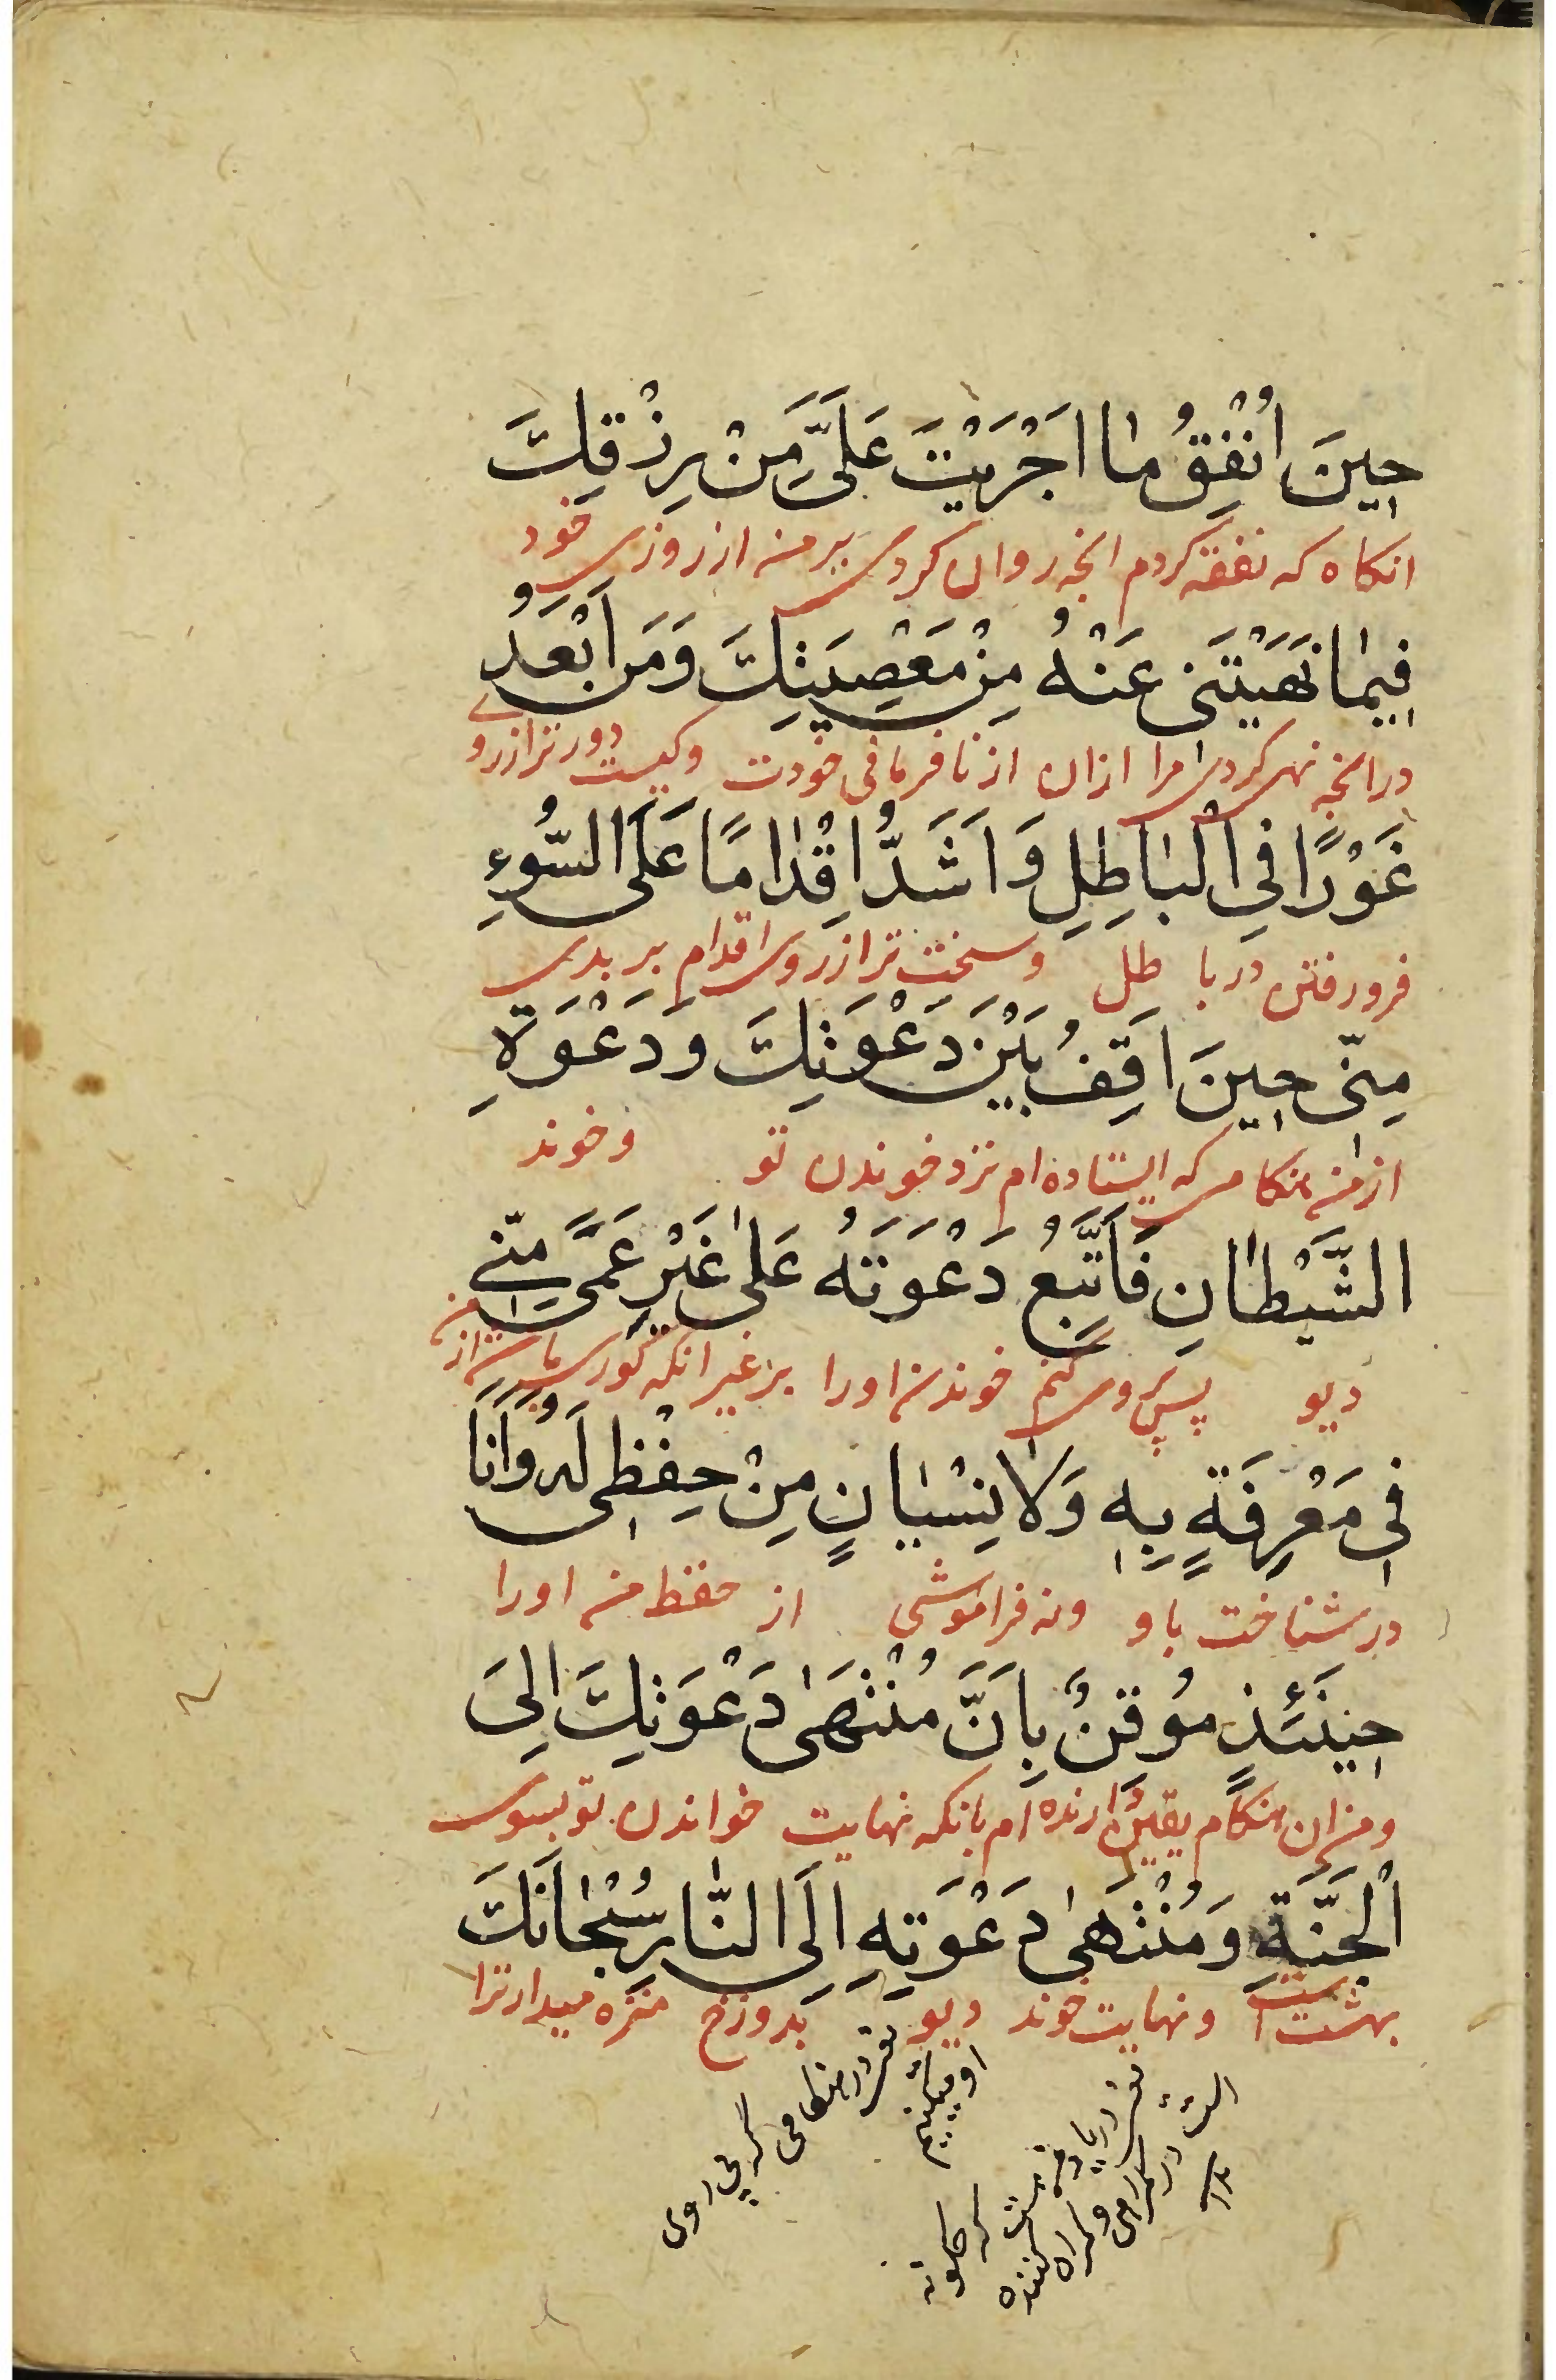 حِينَ اُنْفِقُ مٰا اَجْرَيْتَ عَلَيَّ مِنْ رِزْقِكَ
انکاه که نفقه کردم انچه روان کردی بر من از روزی خود
فِيمٰا نَهَيْتَنى عَنْهُ مِنْ مَعْصِيَتِكَ وَمَنْ اَبْعَدُ
در انچه نهی کردی مرا ازان از نافرمانی خودت و کیست دور تر از روے
غَوْرًا فِي الْبٰاطِلِ وَ اَشَدُّ اِقْدٰامًا عَلَى السُّوءِ
فرو رفتن در باطل و سخت تر از روی اقدام بر بدی
مِنّى حِينَ اَقِفُ بَيْنَ دَعْوَتِكَ وَ دَعْوَةِ
از من هنکامی که ایستاده ام نزد خوندن تو و خوند
الشَّيْطٰانِ فَاَتَّبِعُ دَعْوَتَهُ عَلىٰ غَيْرِ عَمًى مِنّے
دیو پس پیروی کنم خوندن اورا بر غیر انکه کوری باشد از من
فى مَعْرِفَةٍ بِهِ وَلٰا نِسْيٰانٍ مِنْ حِفْظى لَهُ وَاَنَا
در شناخت باو ونه فراموشی از حفظ من اورا
حِينَئِذٍ مُوقِنٌ بِاَنَّ مُنْتَهىٰ دَعْوَتِكَ اِلَى
و من ان هنکام یقین دارنده ام بانکه نهایت خواندن تو بسوی
الْجَنَّةِ وَ مُنْتَهىٰ دَعْوَتِهِ اِلَى النّٰارِ سُبْحٰانَكَ
بهشت است و نهایت خوند دیو بدوزخ منزه میدارم ترا